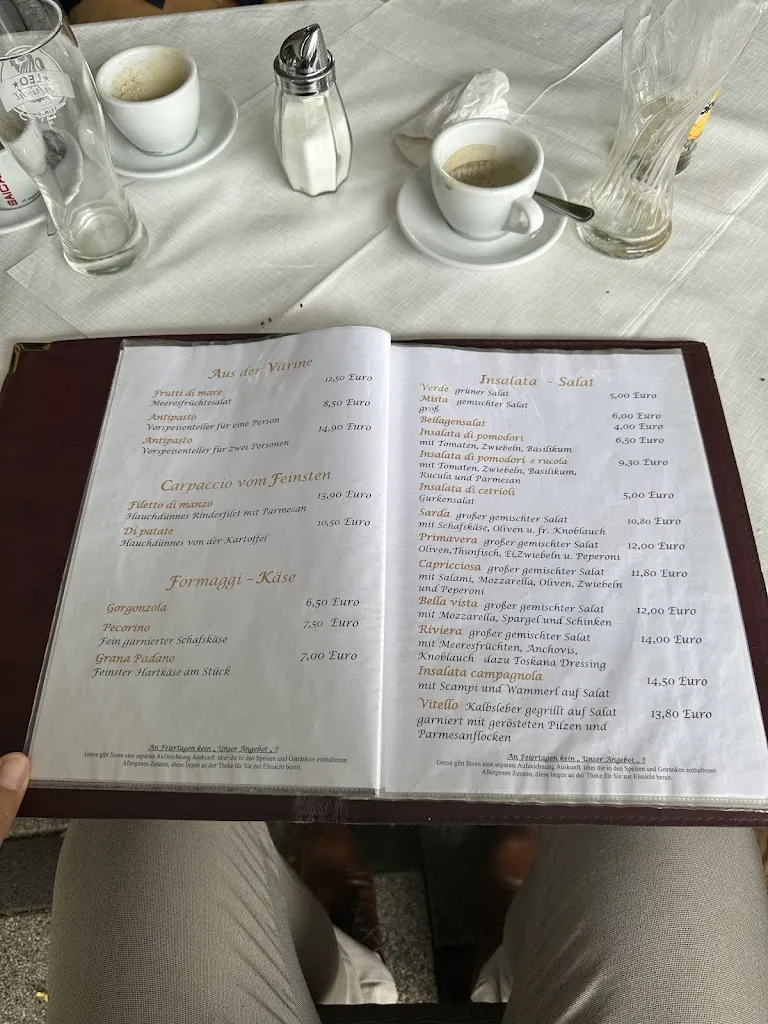 LEO
Aus der Vitrine
Frutti di mare 12,50 Euro
Meeresfrüchtesalat
Antipasto 8,50 Euro
Vorspeisenteller für eine Person
Antipasto 14,90 Euro
Vorspeisenteller für zwei Personen
Carpaccio vom Feinsten
Filetto di manzo 13,90 Euro
Hauchdünnes Rinderfilet mit Parmesan
Di patate 10,50 Euro
Hauchdünnes von der Kartoffel
Formaggi - Käse
Gorgonzola 6,50 Euro
Pecorino 7,50 Euro
Fein garnierter Schafskäse
Grana Padano 7,00 Euro
Feinster Hartkäse am Stück
An Feiertagen kein „ Unser Angebot „ !!
Gerne gibt Ihnen eine separate Aufzeichnung Auskunft über die in den Speisen und Getränken enthaltenen
Allergenen Zutaten, diese liegen an der Theke für Sie zur Einsicht bereit.
Insalata - Salat
Verde grüner Salat 5,00 Euro
Mista gemischter Salat
groß 6,00 Euro
Beilagensalat 4,00 Euro
Insalata di pomodori 6,50 Euro
mit Tomaten, Zwiebeln, Basilikum
Insalata di pomodori e rucola 9,30 Euro
mit Tomaten, Zwiebeln, Basilikum,
Rucula und Parmesan
Insalata di cetrioli 5,00 Euro
Gurkensalat
Sarda großer gemischter Salat 10,80 Euro
mit Schafskäse, Oliven u. fr. Knoblauch
Primavera großer gemischter Salat 12,00 Euro
Oliven,Thunfisch, Ei,Zwiebeln u. Peperoni
Capricciosa großer gemischter Salat 11,80 Euro
mit Salami, Mozzarella, Oliven, Zwiebeln
und Peperoni
Bella vista großer gemischter Salat 12,00 Euro
mit Mozzarella, Spargel und Schinken
Riviera großer gemischter Salat 14,00 Euro
mit Meeresfrüchten, Anchovis,
Knoblauch dazu Toskana Dressing
Insalata campagnola 14,50 Euro
mit Scampi und Wammerl auf Salat
Vitello Kalbsleber gegrillt auf Salat 13,80 Euro
garniert mit gerösteten Pilzen und
Parmesanflocken
An Feiertagen kein „ Unser Angebot „ !!
Gerne gibt Ihnen eine separate Aufzeichnung Auskunft über die in den Speisen und Getränken enthaltenen
Allergenen Zutaten, diese liegen an der Theke für Sie zur Einsicht bereit.